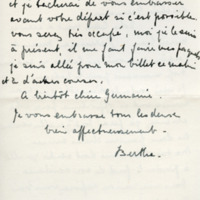 et je tacherai de vous embrasser
avant votre départ si c'est possible
vous serez très occupée, moi je le suis
à présent, il me faut faire mes paquets
je suis allée pour mon billet ce matin
et 2 d'autres courses.
A bientôt chère Germaine.
Je vous embrasse tous les deux
bien affectueusement.
Berthe.